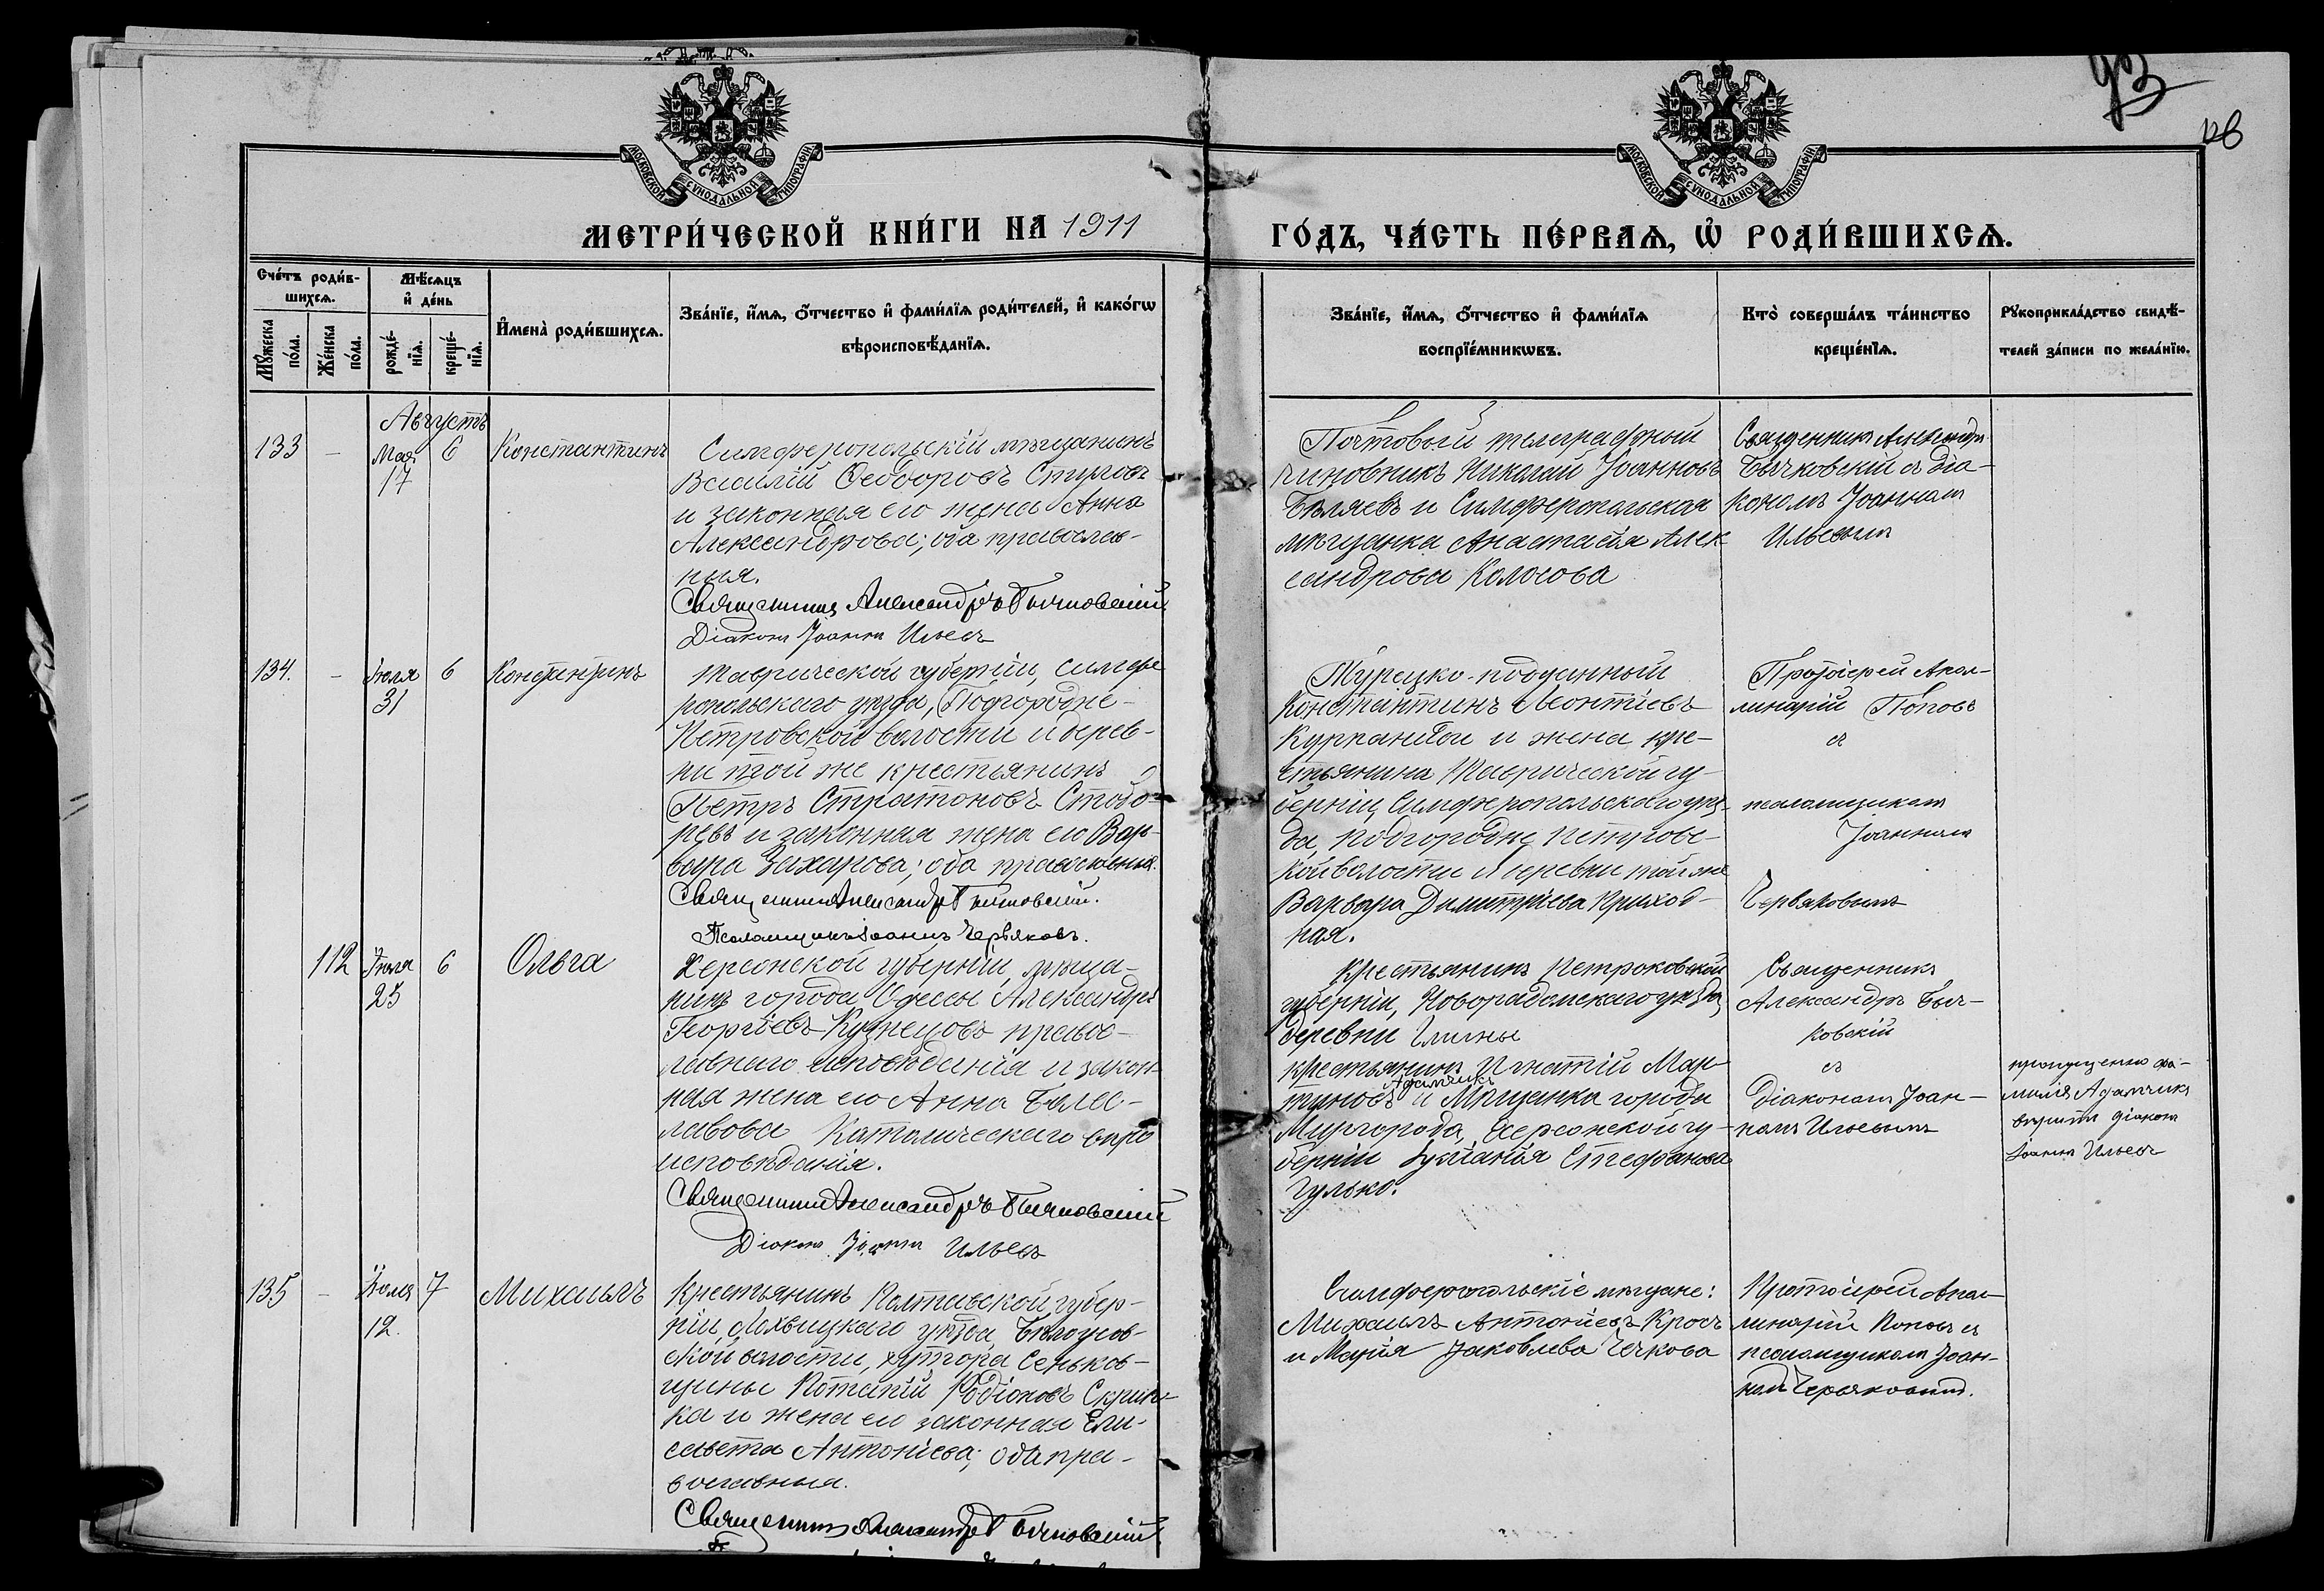 93
128
МОСКОВСКОЙ СУНОДАЛЬНОЙ ТИПОГРАФІИ
МОСКОВСКОЙ СУНОДАЛЬНОЙ ТИПОГРАФІИ
МЕТРИ́ЧЕСКОЙ КНИ́ГИ НА 1911
ГО́ДЪ, ЧА́СТЬ ПЕ́РВАѦ, Ѡ҆ РОДИ́ВШИХСѦ.
Сче́тъ роди́в-
шихсѧ.
Мꙋ́жеска по́ла.
Же́нска по́ла.
Мѣ́сѧцъ
и҆ де́нь
рожде́-
нїѧ.
креще́-
нїѧ.
И҆мена̀ роди́вшихсѧ.
Зва́нїе, и҆́мѧ, ѻ҆́тчество и҆ фами́лїѧ роди́телей, и҆ како́гѡ
вѣроисповѣ́данїѧ.
Зва́нїе, и҆́мѧ, ѻ҆́тчество и҆ фами́лїѧ
воспрїе́мникѡвъ.
Кто̀ соверша́лъ та́инство
креще́нїѧ.
Рꙋкоприкла́дство свидѣ́-
телей за́писи по жела́нїю.
Августъ
133
–
Мая
17
6
Константинъ
Симферопольскій мѣщанинъ
Василій Ѳеодоровъ
и законная его жена Анна
Александрова; оба православ-
ныя.
Священникъ Александръ Бычковскій
Діаконъ Іоаннъ Ильевъ
Почтовой телеграфный
чиновникъ Николай Іоанновъ
Бѣляевъ и Симферопольская
мѣщанка Анастасія Алек
сандрова Колосова
Священникъ Александръ
Бычковскій съ діа-
кономъ Іоанномъ
Ильевымъ
134.
–
Іюля
31
6
Константинъ
Таврической губерніи, Симфе
ропольскаго уѣзда, Подгородне-
Петровской волости и дерев-
ни той же крестьянинъ
Петръ Стратоновъ
и законная жена его Вар-
вара Захарова; оба православныя.
Священникъ Александръ Бычковскій.
Псаломщикъ Іоаннъ Червяковъ.
Турецко-подданный
Константинъ Леонтіевъ
и жена кре-
стьянина Таврической гу-
берніи, Симферопольскаго уѣз-
да, Подгородне Петровс-
кой волости и деревни той же
Варвара Димитріева Приход-
ная.
Протоіерей Апол-
линарій Поповъ
съ
псаломщикомъ
Іоанномъ
Червяковымъ
112
Іюля
25
6
Ольга
Херсонской губерніи, мѣща-
нинъ города Одессы Александръ
Георгіевъ Кузнецовъ правос-
лавнаго исповѣданія и закон-
ная жена его Анна Болес-
лавова Католическаго вѣро
исповѣданія.
Священникъ Александръ Бычковскій
Діаконъ Іоаннъ Ильевъ
Крестьянинъ Петроковской
губерніи, Новорадомскаго уѣзда,
деревни Глины
крестьянинъ Игнатій Мар-
Адамчикъ
тиновъ и Мѣщанка города
Миргорода, Херсонской гу-
берніи Стефанова
Гулько.
Священникъ
Александръ Быч-
ковскій
съ
Діакономъ Іоан-
номъ Ильевымъ
пропущенно фа-
милія Адамчикъ
вѣрить діаконъ
Іоаннъ Ильевъ
135
–
Іюля
12.
7
Михаилъ
Крестьянинъ Полтавской губер-
ніи, Лохвицкаго уѣзда Бѣлоусов-
ской волости, хутора Сеньков-
щины Потапій Родіоновъ Скрип-
ка и жена его законная Ели-
савета Антоніева; оба пра-
вославныя.
Священникъ Александръ Бычковскій
Симферопольскіе мѣщане:
Михаилъ Антоніевъ Кросъ
и Марія Яковлева Чечкова
Протоіерей Апол-
линарій Поповъ съ
псаломщикомъ Іоан-
номъ Червяковымъ.